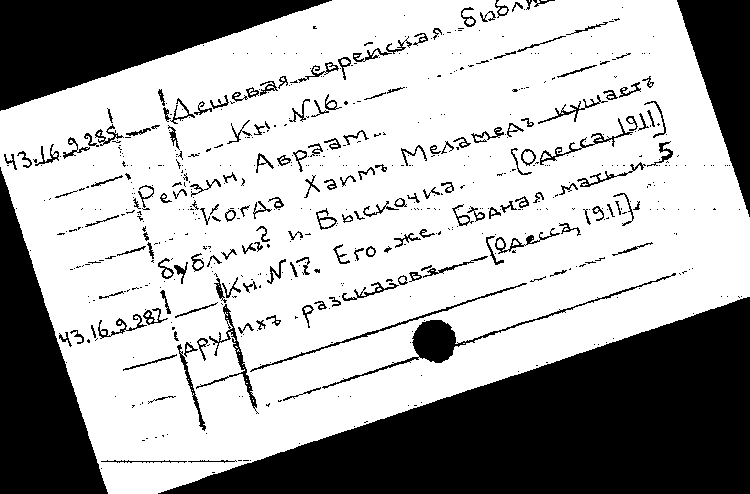 Дешевая еврейская
43.16.9.285
Кн. N16.
Рейзин, Авраам.
Когда Хаимъ Меламедъ кушаетъ
бублик? и Выскочка. [Одесса, 1911.]
Кн. N17. Его-же. Бѣдная мать и 5
43.16.9.287
другихъ разсказовъ [Одесса, 1911].